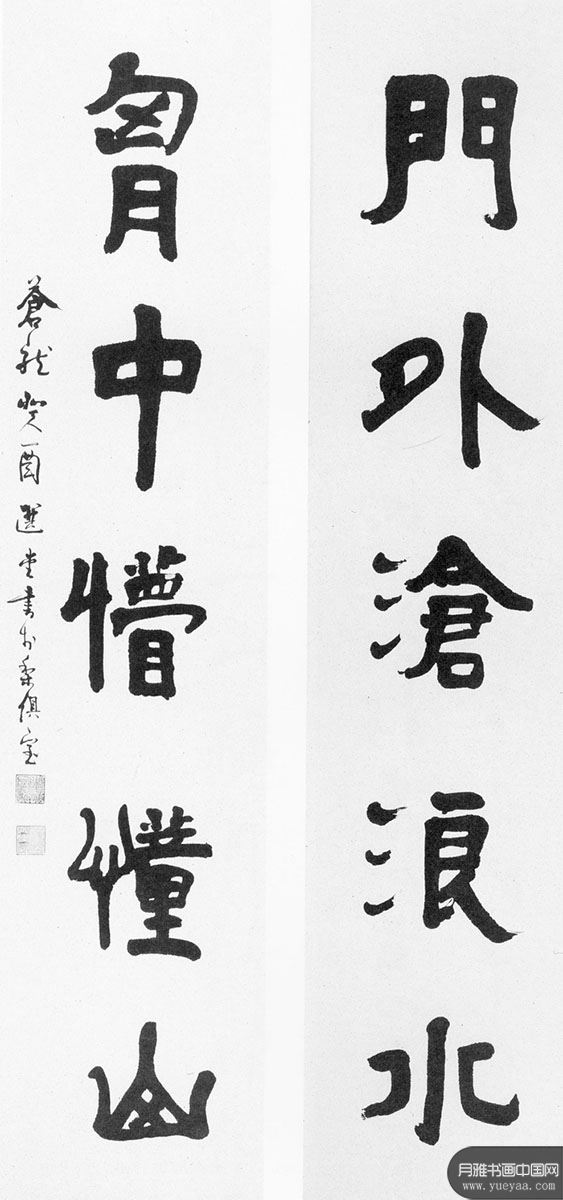 門外滄浪水
胷中懵懂山
蒼龍癸酉選堂書於梨俱室
月雅书画中国网
www.yueyaa.com